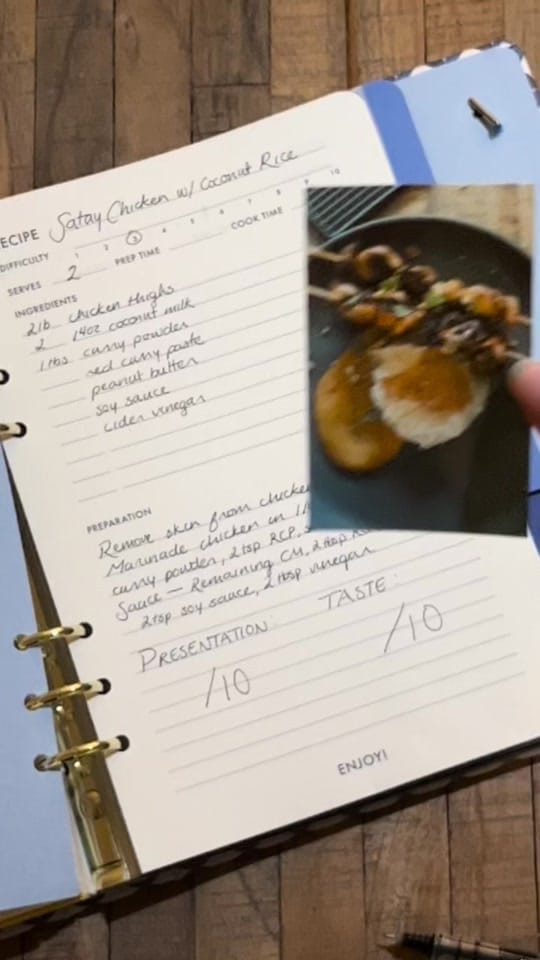 ECIPE Satay Chicken w/ Coconut Rice
DIFFICULTY 1 2 3 4 5 6 7 8 9 10
SERVES 2 PREP TIME COOK TIME
INGREDIENTS
2lb chicken thighs
2 14oz coconut milk
1 tbs curry powder
red curry paste
peanut butter
soy sauce
cider vinegar
PREPARATION
Remove skin from chicke
Marinade chicken in
curry powder, 2 tsp RCP,
Sauce — Remaining CM, 2 tbsp
2 tsp soy sauce, 2 tbsp vinegar
PRESENTATION: TASTE:
/10 /10
ENJOY!